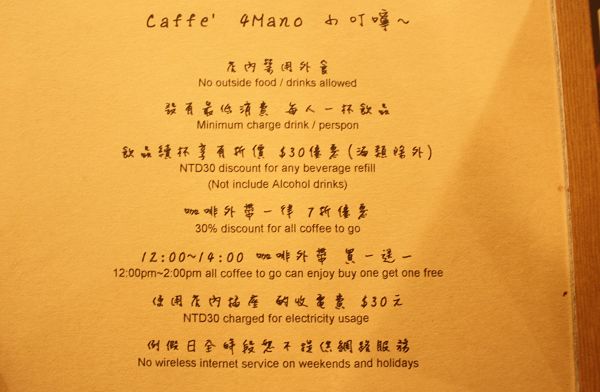 Caffe' 4Mano 小叮嚀~
店內禁用外食
No outside food / drinks allowed
設有最低消費 每人一杯飲品
Minimum charge drink / perspon
飲品續杯享有折價 $30優惠(酒類除外)
NTD30 discount for any beverage refill
(Not include Alcohol drinks)
咖啡外帶一律 7折優惠
30% discount for all coffee to go
12:00~14:00 咖啡外帶 買一送一
12:00pm~2:00pm all coffee to go can enjoy buy one get one free
使用店內插座 酌收電費 $30元
NTD30 charged for electricity usage
例假日全時段恕不提供網路服務
No wireless internet service on weekends and holidays